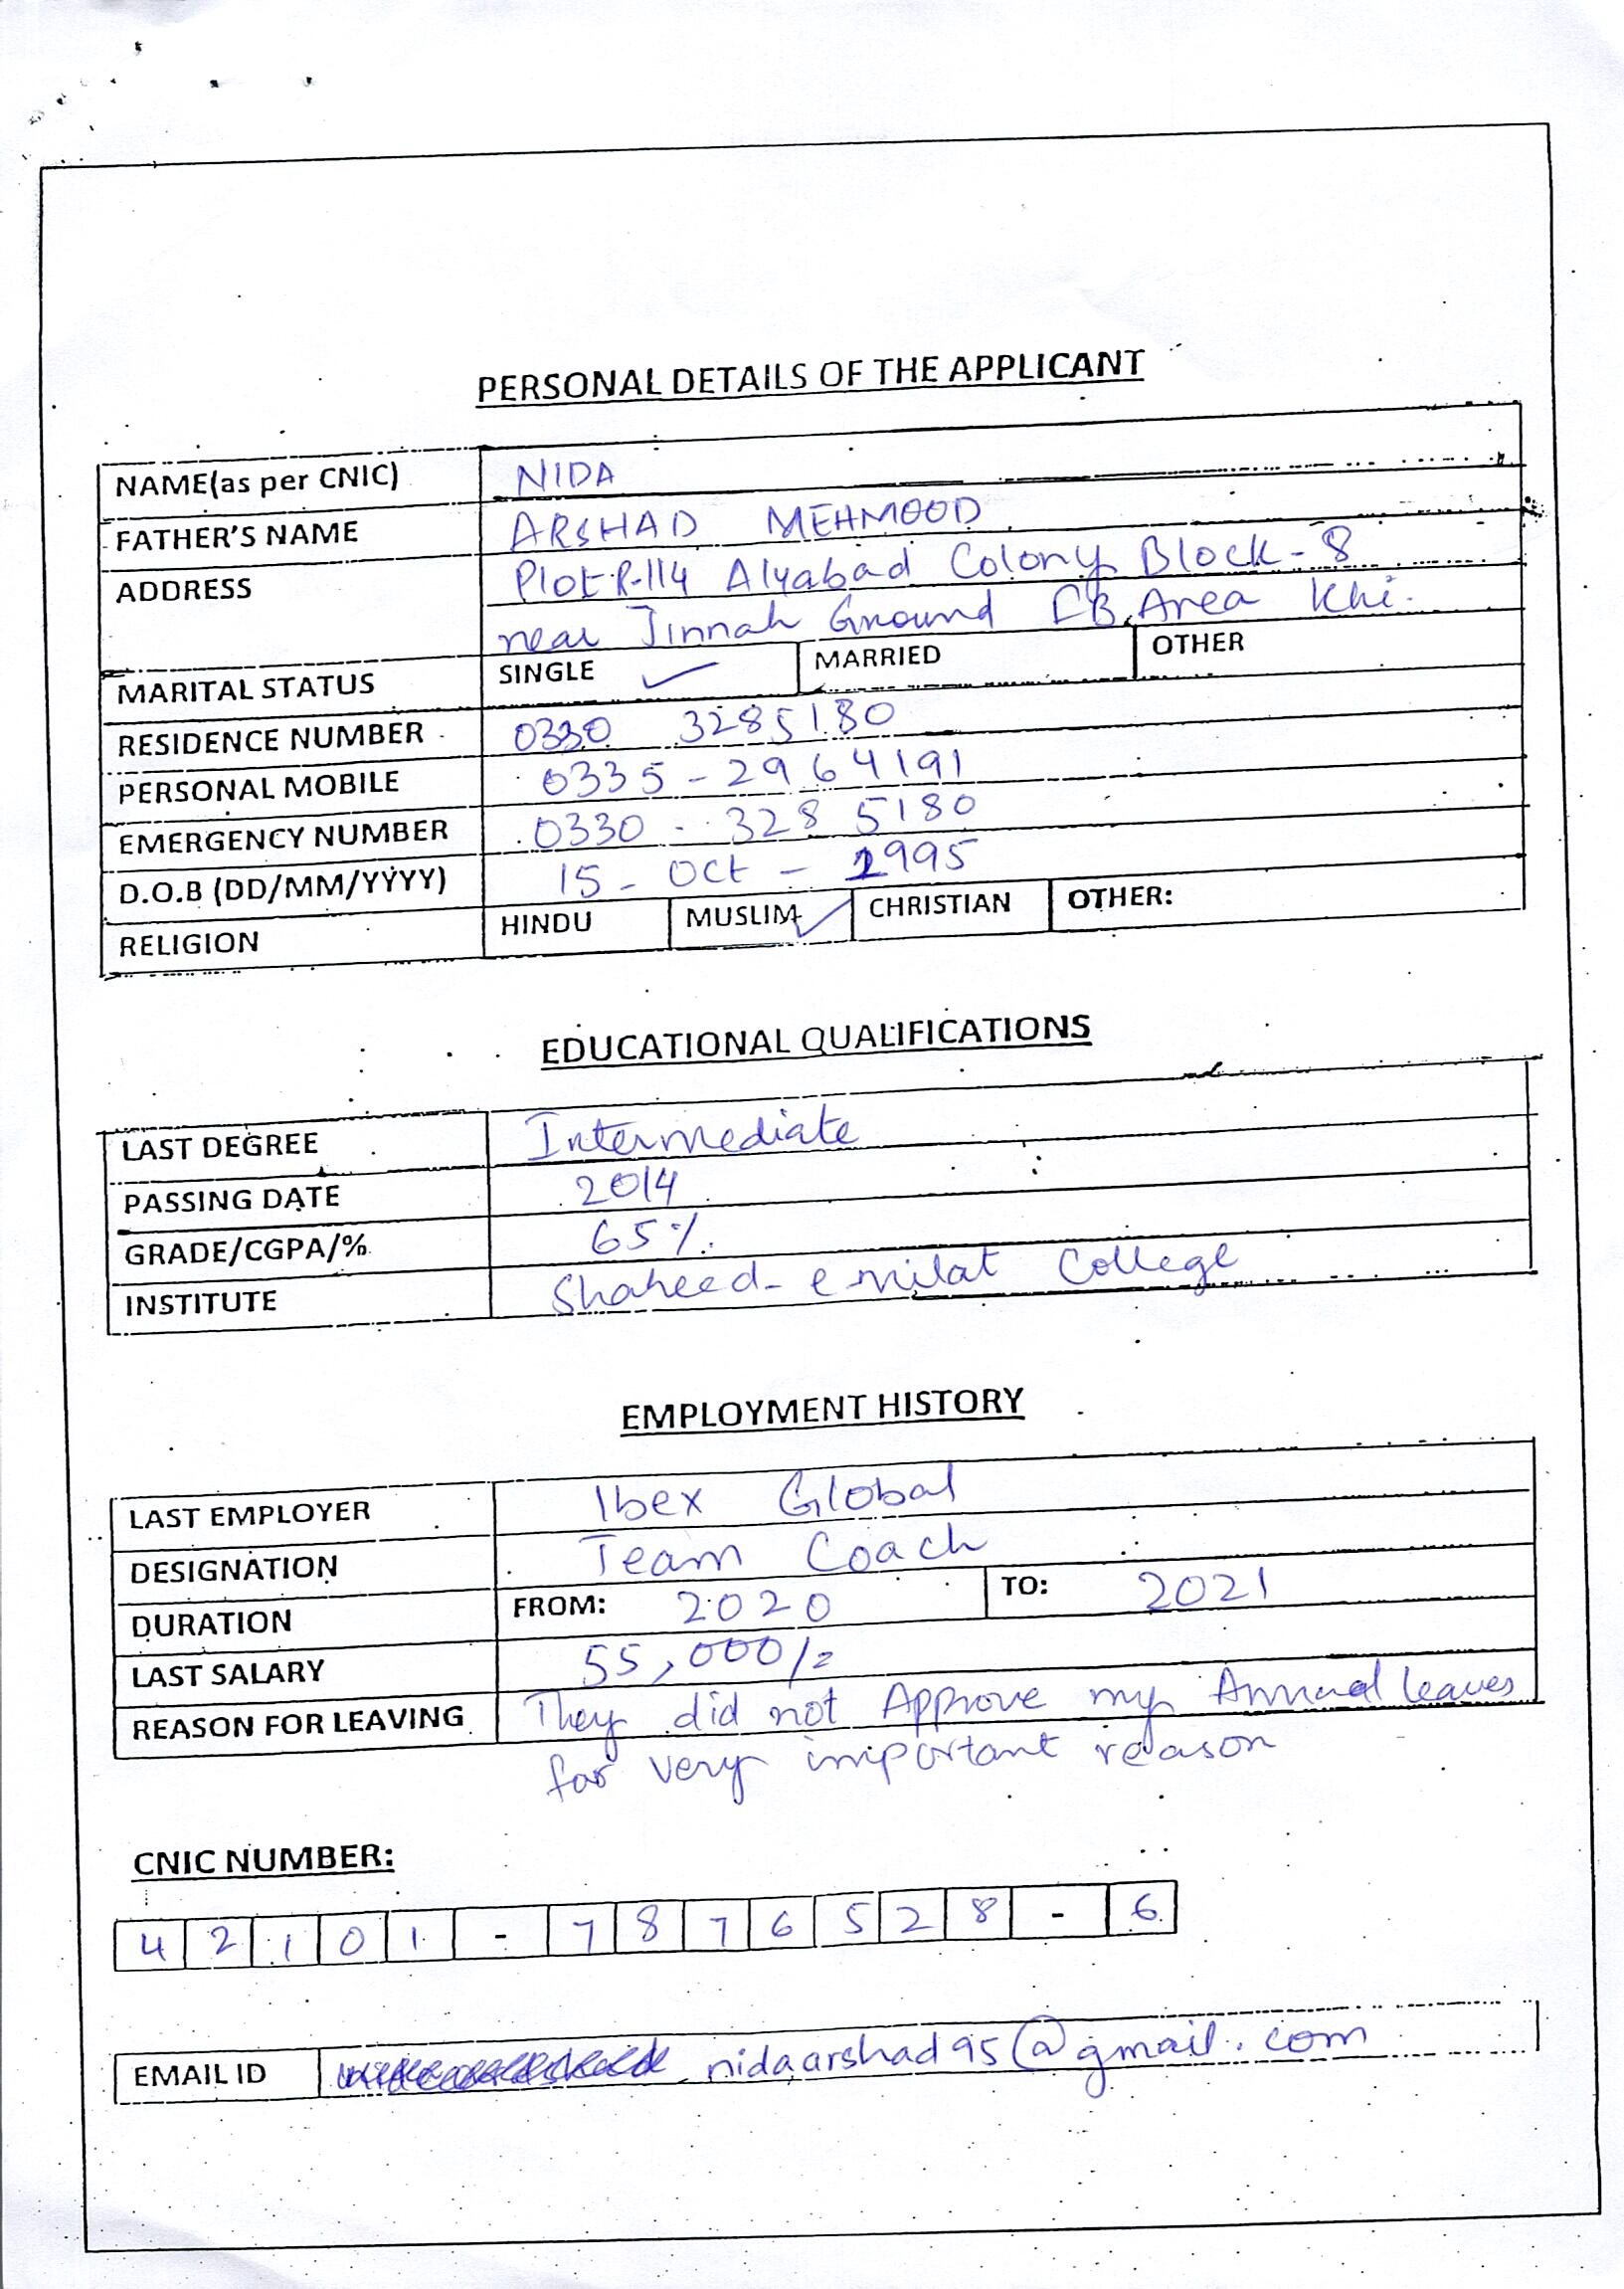 PERSONAL DETAILS OF THE APPLICANT
NAME(as per CNIC) NIDA
FATHER'S NAME ARSHAD MEHMOOD
ADDRESS Plot R-114 Alyabad Colony Block-8
near Jinnah Ground FB Area Khi.
MARITAL STATUS SINGLE ✓ MARRIED OTHER
RESIDENCE NUMBER 0330 3285180
PERSONAL MOBILE 0335-2964191
EMERGENCY NUMBER 0330-3285180
D.O.B (DD/MM/YYYY) 15-Oct-1995
RELIGION HINDU MUSLIM ✓ CHRISTIAN OTHER:
EDUCATIONAL QUALIFICATIONS
LAST DEGREE Intermediate
PASSING DATE 2014
GRADE/CGPA/% 65%
INSTITUTE Shaheed-e milat College
EMPLOYMENT HISTORY
LAST EMPLOYER Ibex Global
DESIGNATION Team Coach
DURATION FROM: 2020 TO: 2021
LAST SALARY 55,000/=
REASON FOR LEAVING They did not Approve my Annual leaves
for very important reason
CNIC NUMBER:
42101-7876528-6
EMAIL ID nidaarshad95@gmail.com